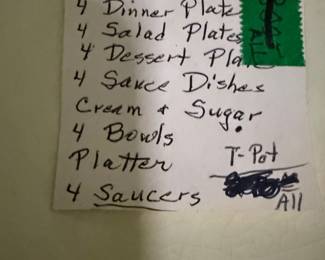 4 Dinner Plate
4 Salad Plates
4 Dessert Pla
4 Sauce Dishes
Cream & Sugar
4 Bowls
Platter
T-Pot
4 Saucers
All
All